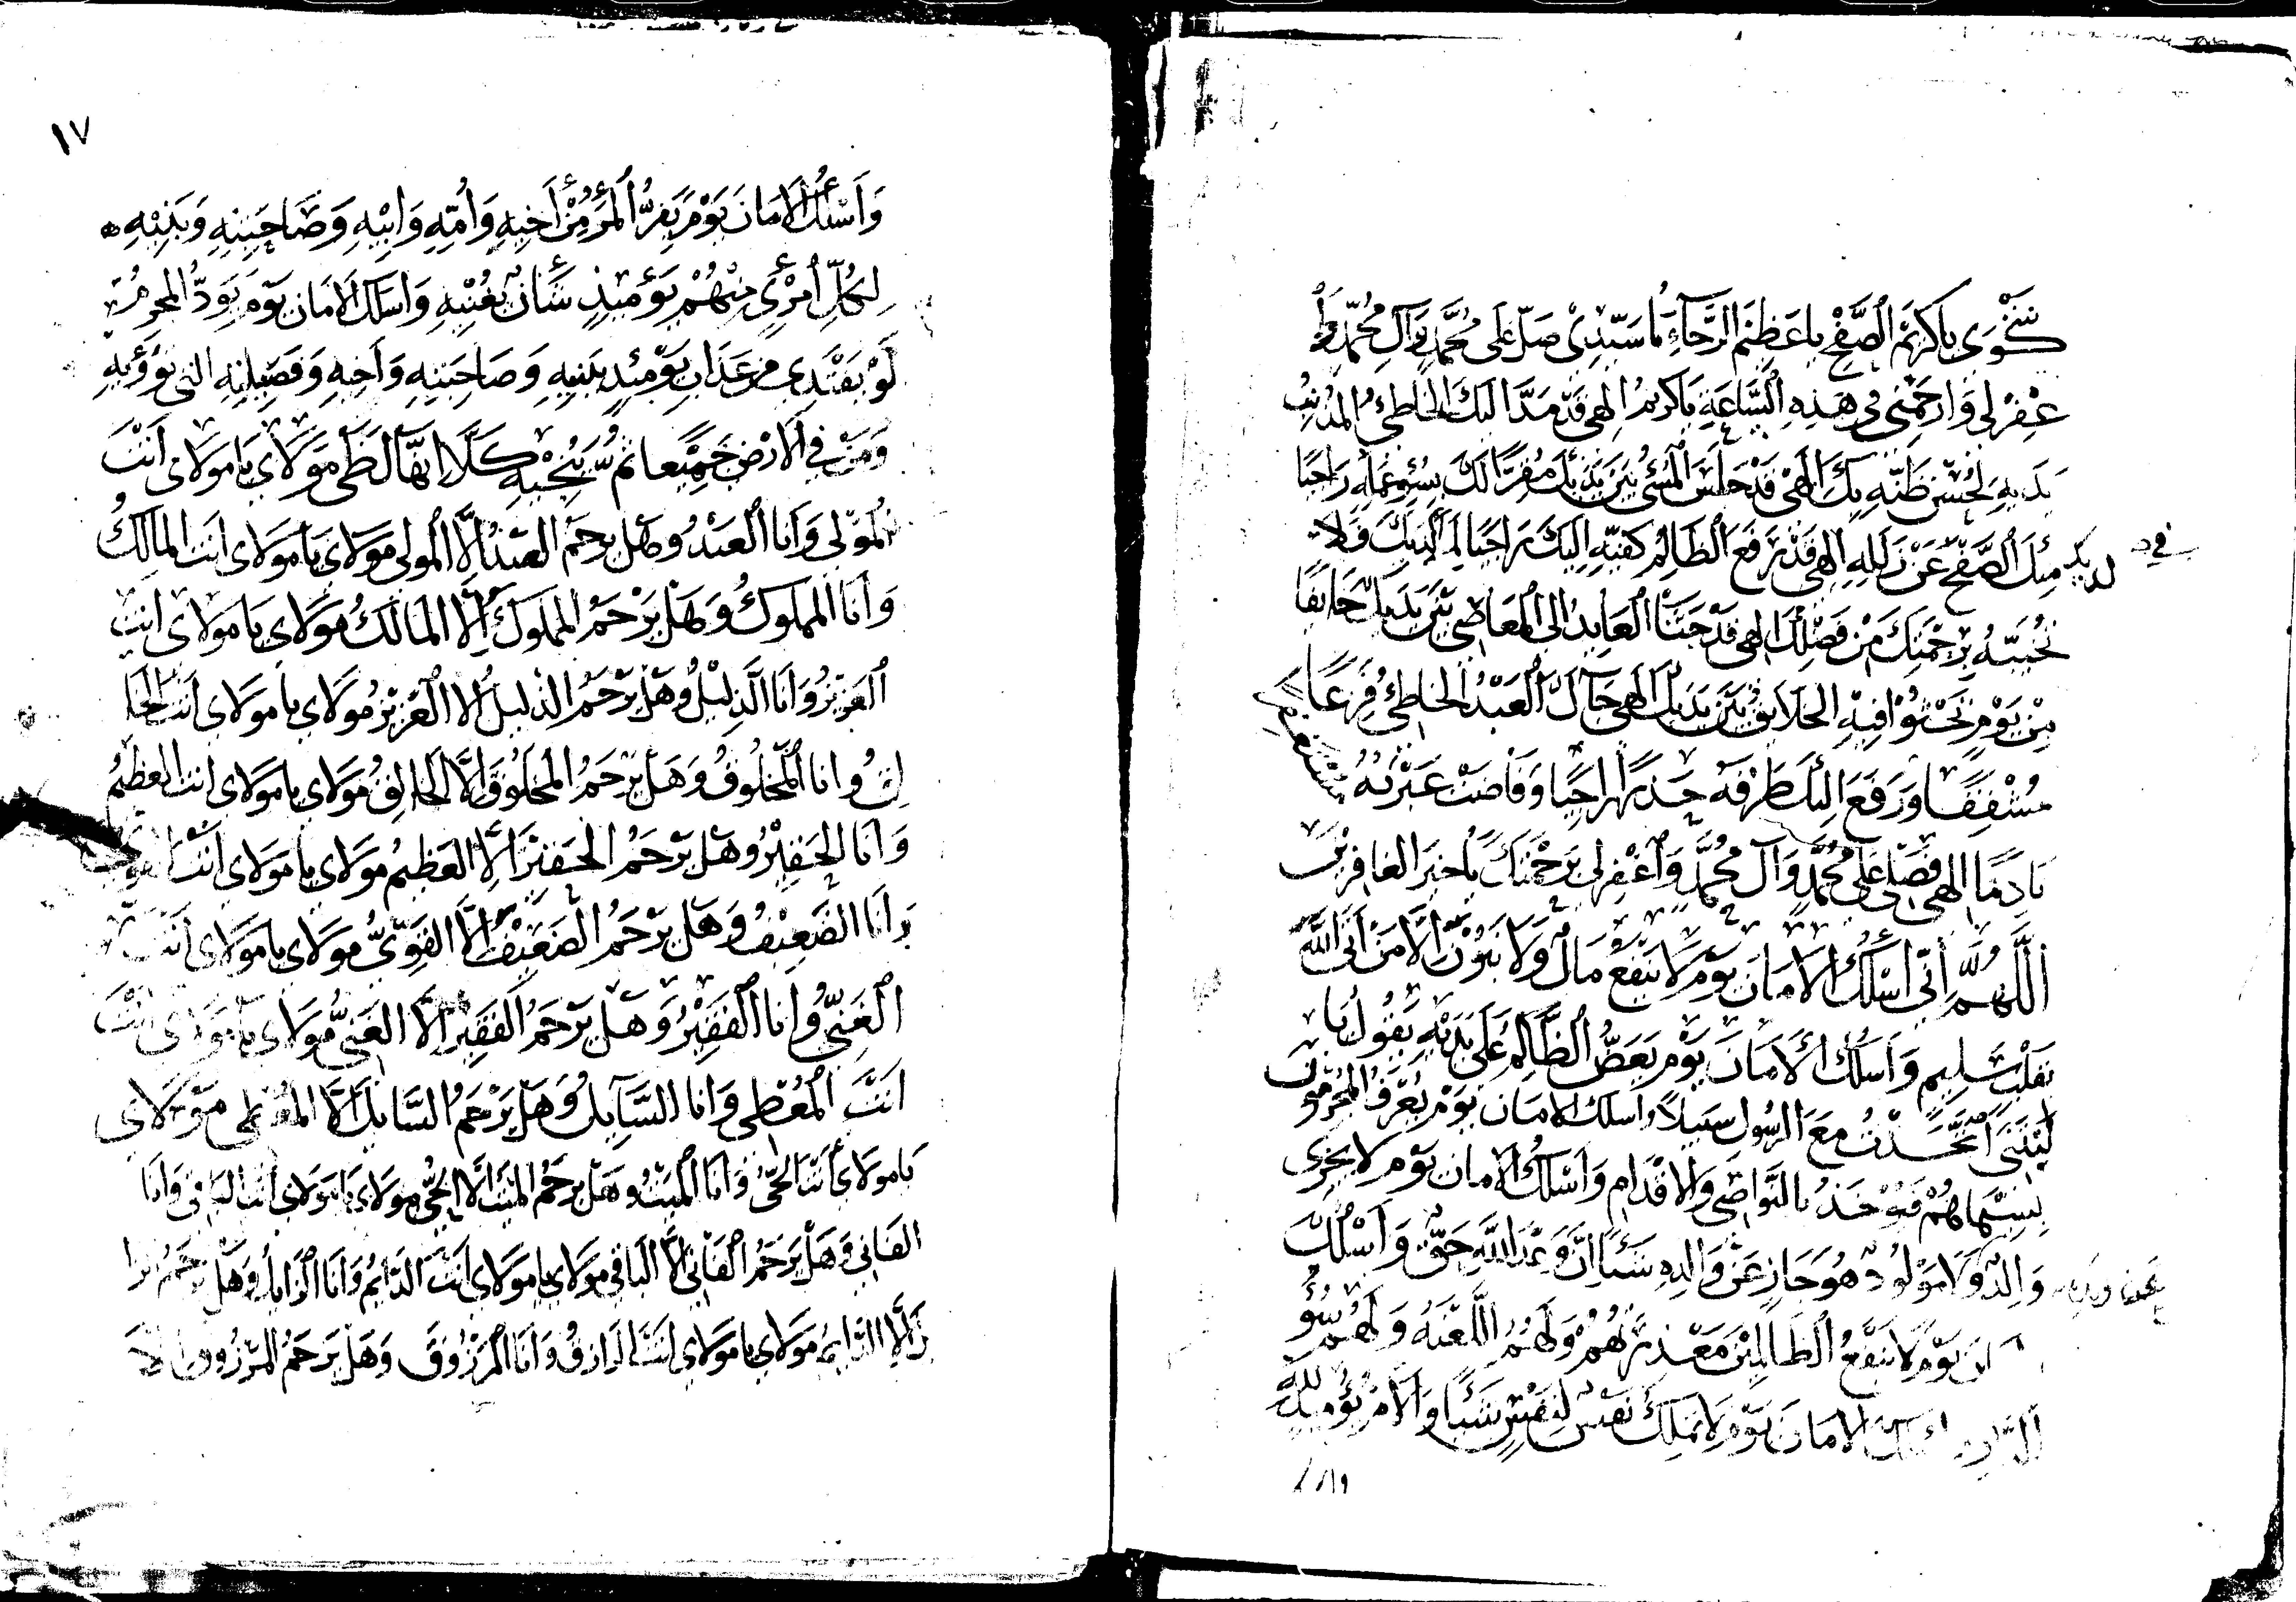 شكوى يا كريم الصفح يا عظيم الرجاء يا سيدي صل على محمد وال محمد وا
غفرلي وارحمني في هذه الساعة يا كريم الهي قد مد اليك الخاطئ المذنب
يديه لحسن ظنه بك الهي قد جلس المسئ بين يديك مقرا لك بسوء عمله راجيا
لديك منك الصفح عن زلله الهي قد رفع الظالم كفيه اليك راجيا لما لديك فلا
في
تخيبه برحمتك من فضلك الهي قد جثا العايد الى المعاصي بين يديك خايفا
من يوم تجثوا فيه الخلايق بين يديك الهي جاءك العبد الخاطئ فزعا
مشفقا ورفع اليك طرفه حذرا راجيا وفاضت عبرته
نادما الهي فصل على محمد وآل محمد واغفرلي برحمتك يا خير الغافرين
اللهم اني اسئلك الامان يوم لا ينفع مال ولا بنون الا من اتى الله
بقلب سليم واسئلك الامان يوم يعض الظالم على يديه يقول يا
ليتني اتخذت مع الرسول سبيلا واسئلك الامان يوم يعرف المجرمون
بسيماهم فيؤخذ بالنواصي والاقدام واسئلك الامان يوم لا يجزي
والد ولا مولود هو جاز عن والده شيئا ان وعد الله حق واسئلك
يوم لا ينفع الظالمين معذرتهم ولهم اللعنة ولهم سوء
الدار الامان يوم لا تملك نفس لنفس شيئا والامر يومئذ لله
١٧
واسئلك الامان يوم يفر المرء من أخيه وأمه وابيه وصاحبته وبنيه
لكل امرئ منهم يومئذ شأن يغنيه واسئلك الامان يوم يود المجرم
لو يفتدي من عذاب يومئذ ببنيه وصاحبته وأخيه وفصيلته التي تؤويه
ومن في الارض جميعا ثم ينجيه كلا انها لظى مولاي يا مولاي أنت
المولى وانا العبد وهل يرحم العبد الا المولى مولاي يا مولاي انت المالك
وانا المملوك وهل يرحم المملوك الا المالك مولاي يا مولاي انت
العزيز وانا الذليل وهل يرحم الذليل الا العزيز مولاي يا مولاي انت الخا
لق وانا المخلوق وهل يرحم المخلوق الا الخالق مولاي يا مولاي انت العظيم
وانا الحقير وهل يرحم الحقير الا العظيم مولاي يا مولاي انت القوي
وانا الضعيف وهل يرحم الضعيف الا القوي مولاي يا مولاي انت
الغني وانا الفقير وهل يرحم الفقير الا الغني مولاي يا مولاي انت
انت المعطي وانا السايل وهل يرحم السايل الا المعطي مولاي
يا مولاي انت الحي وانا الميت وهل يرحم الميت الا الحي مولاي يا مولاي انت الباقي وانا
الفاني وهل يرحم الفاني الا الباقي مولاي يا مولاي انت الدايم وانا الزايل وهل يرحم الزا
يل الا الدايم مولاي يا مولاي انت الرازق وانا المرزوق وهل يرحم المرزوق الا